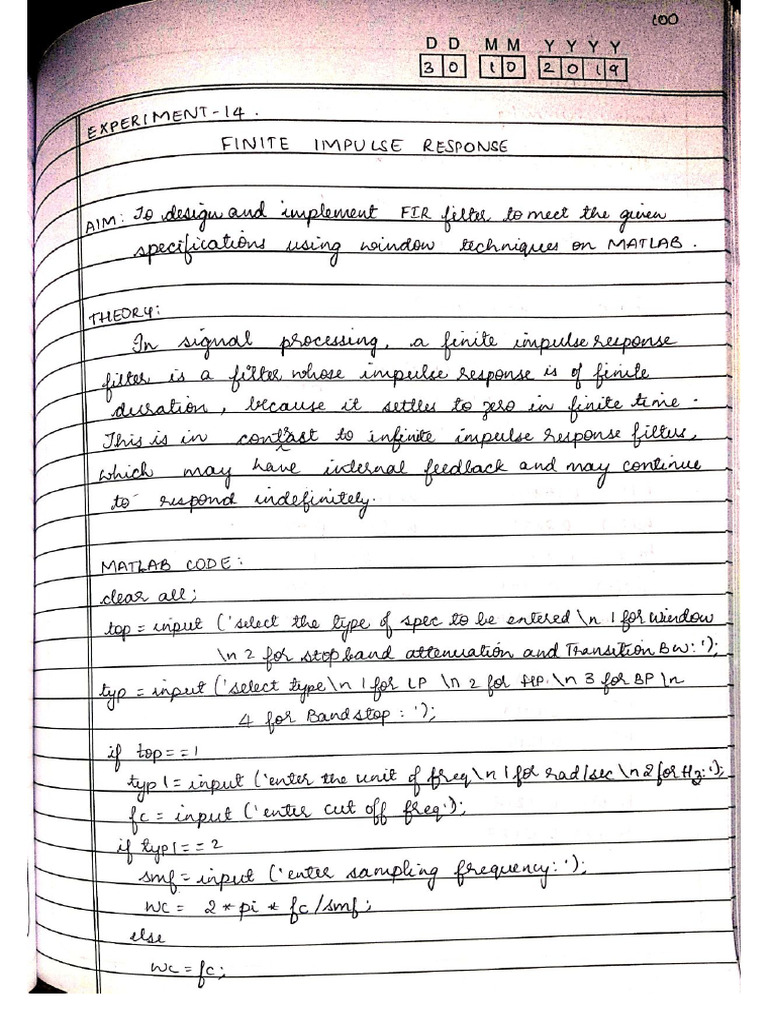 100
D D M M Y Y Y Y
3 0 1 0 2 0 1 9
EXPERIMENT-14.
FINITE IMPULSE RESPONSE
AIM: To design and implement FIR filter to meet the given
specifications using window techniques on MATLAB.
THEORY:
In signal processing, a finite impulse response
filter is a filter whose impulse response is of finite
duration, because it settles to zero in finite time.
This is in contrast to infinite impulse response filter,
which may have internal feedback and may continue
to respond indefinitely.
MATLAB CODE:
clear all;
top = input ('select the type of spec to be entered \n 1 for window
\n 2 for stopband attenuation and Transition BW:');
typ = input ('select type \n 1 for LP \n 2 for HP. \n 3 for BP \n
4 for Bandstop : ');
if top==1
typ1 = input ('enter the unit of freq \n 1 for rad/sec \n 2 for Hz:');
fc = input ('enter cut off freq');
if typ1 == 2
smf = input ('enter sampling frequency: ');
wc = 2 * pi * fc/smf;
else
wc = fc;